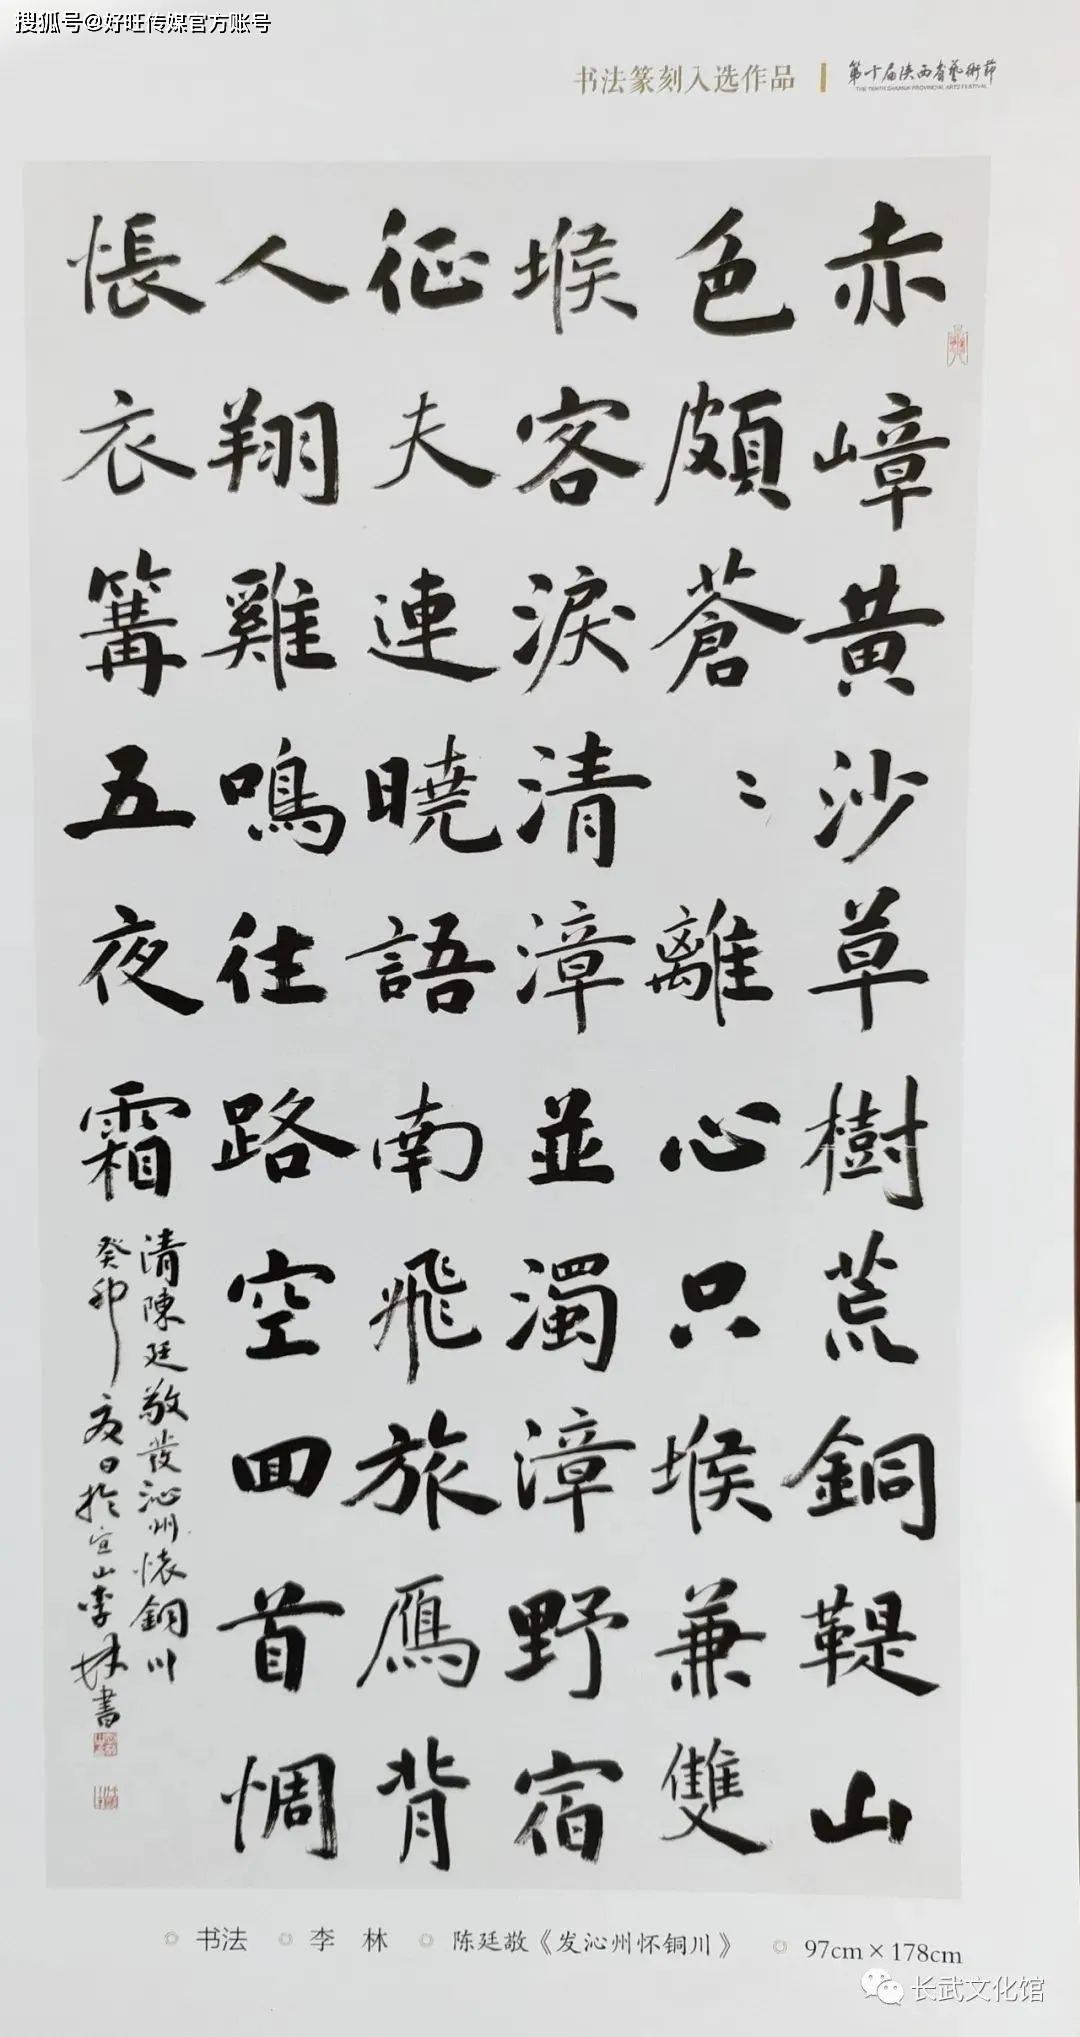 搜狐号@好旺传媒官方账号
书法篆刻入选作品
第十届陕西省藝術節
THE TENTH SHAANXI PROVINCIAL ARTS FESTIVAL
赤嶂黄沙草樹荒銅鞮山
色頗蒼〻離心只堠兼雙
堠客淚清漳並濁漳野宿
征夫連曉語南飛旅鴈背
人翔雞鳴往路空回首惆
悵衣篝五夜霜
清陳廷敬發沁州懷銅川
癸卯夏日於宜山李林書
书法 李林 陈廷敬《发沁州怀铜川》 97cm×178cm
长武文化馆